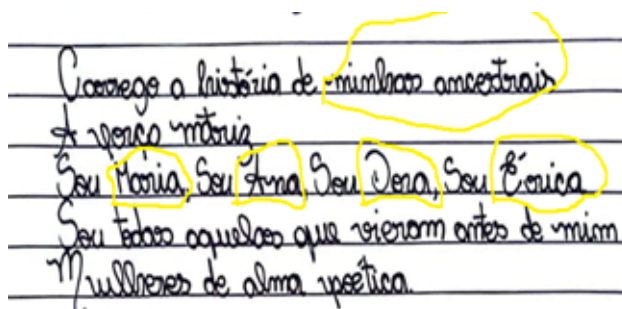 Carrego a história de minhas ancestrais
A força matriz
Sou Maria, Sou Ana, Sou Dora, Sou Érica
Sou todas aquelas que vieram antes de mim
Mulheres de alma poética.